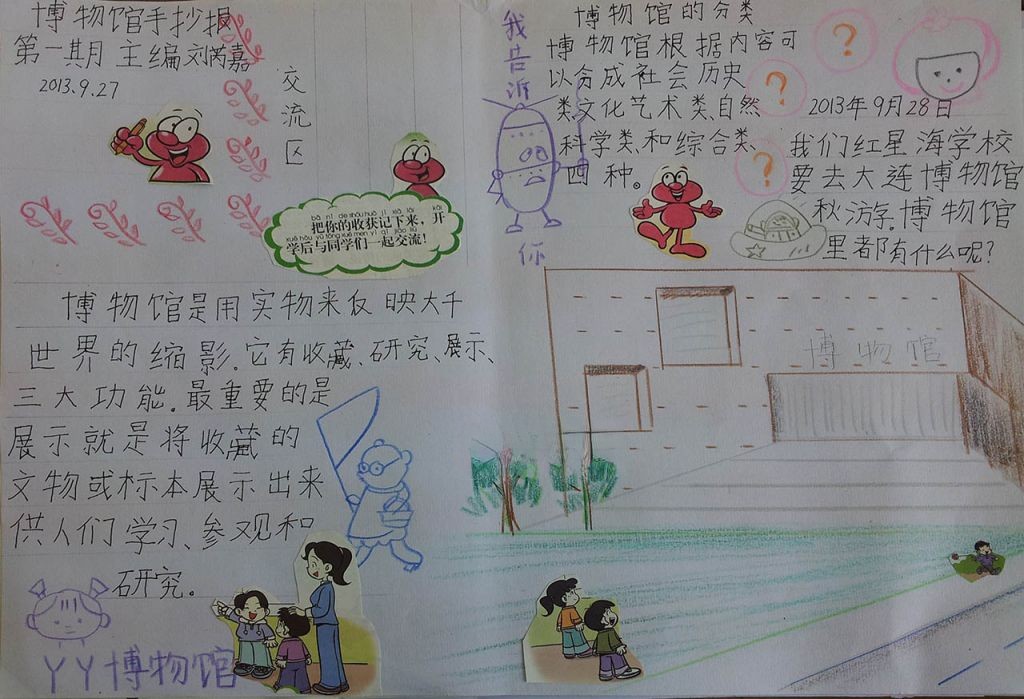 博物馆手抄报
第一期 主编 刘芮嘉
2013.9.27
交流区
把你的收获记下来，开
学后与同学们一起交流！
博物馆是用实物来反映大千
世界的缩影.它有收藏、研究、展示、
三大功能.最重要的是
展示就是将收藏的
文物或标本展示出来
供人们学习、参观和
研究。
YY博物馆
我告诉
你
博物馆的分类
博物馆根据内容可
以分成社会历史
类、文化艺术类、自然
科学类、和综合类、
四种。
2013年9月28日
我们红星海学校
要去大连博物馆
秋游.博物馆
里都有什么呢？
博物馆